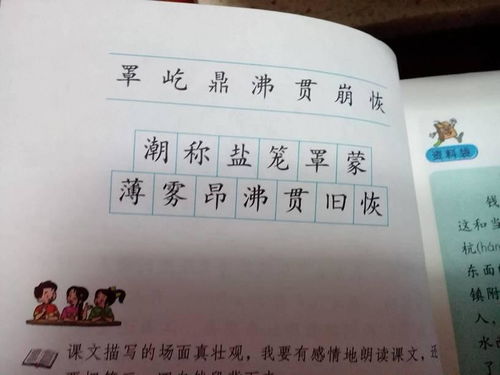 罩 屹 鼎 沸 贯 崩 恢
潮 称 盐 笼 罩 蒙
薄 雾 昂 沸 贯 旧 恢
课文描写的场面真壮观，我要有感情地朗读课文，还
资料袋
钱
这和当
杭(hán
东面
镇附
人，
水